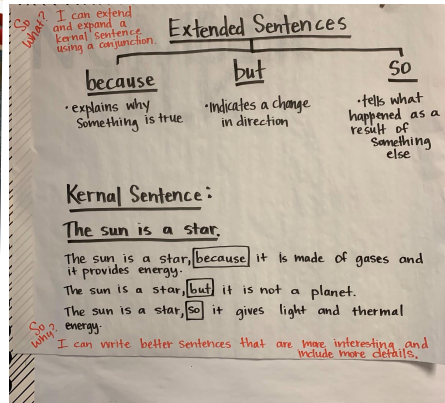 So What?
I can extend
and expand a
kernal sentence
using a conjunction.
Extended Sentences
because
•explains why
Something is true
but
•Indicates a change
in direction
so
•tells what
happened as a
result of
Something
else
Kernal Sentence:
The sun is a star.
The sun is a star, because it is made of gases and
it provides energy.
The sun is a star, but it is not a planet.
The sun is a star, so it gives light and thermal
energy.
So Why?
I can write better sentences that are more interesting and
include more details.